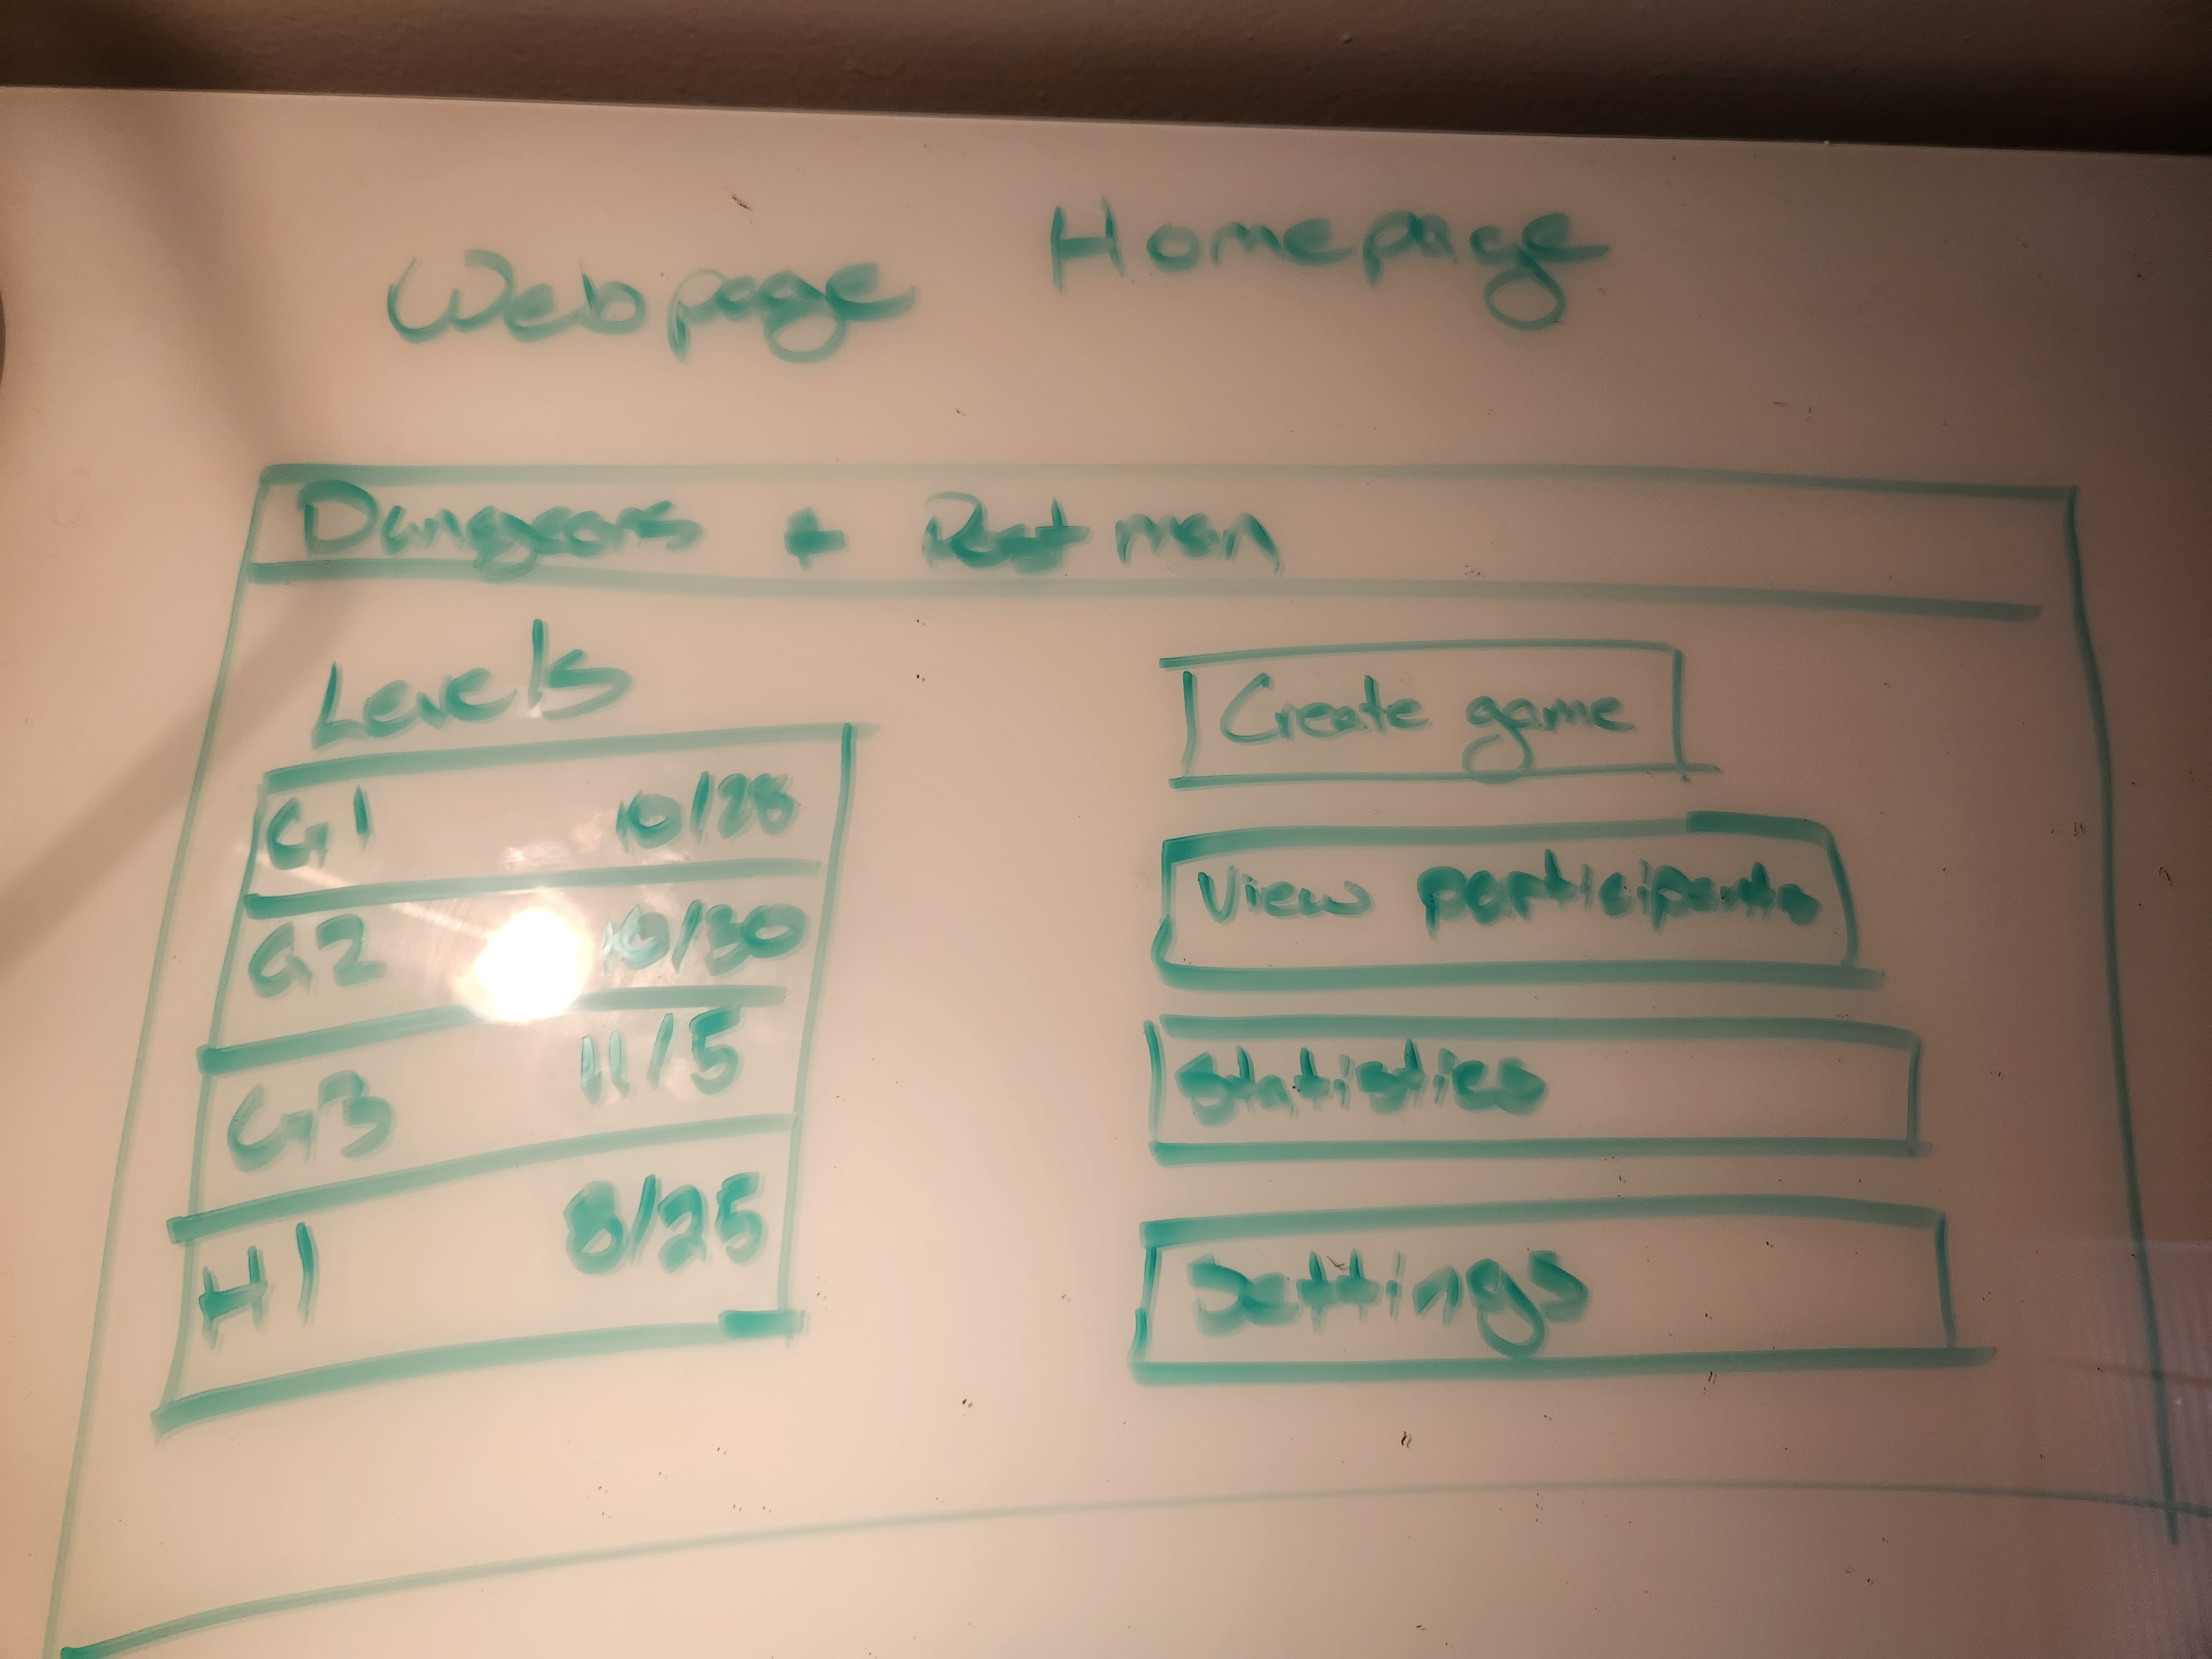 Webpage Homepage
Dungeons + Rest men
Levels
G1 10/28
G2 10/30
G3 11/5
H1 8/25
Create game
View participants
Statistics
Settings